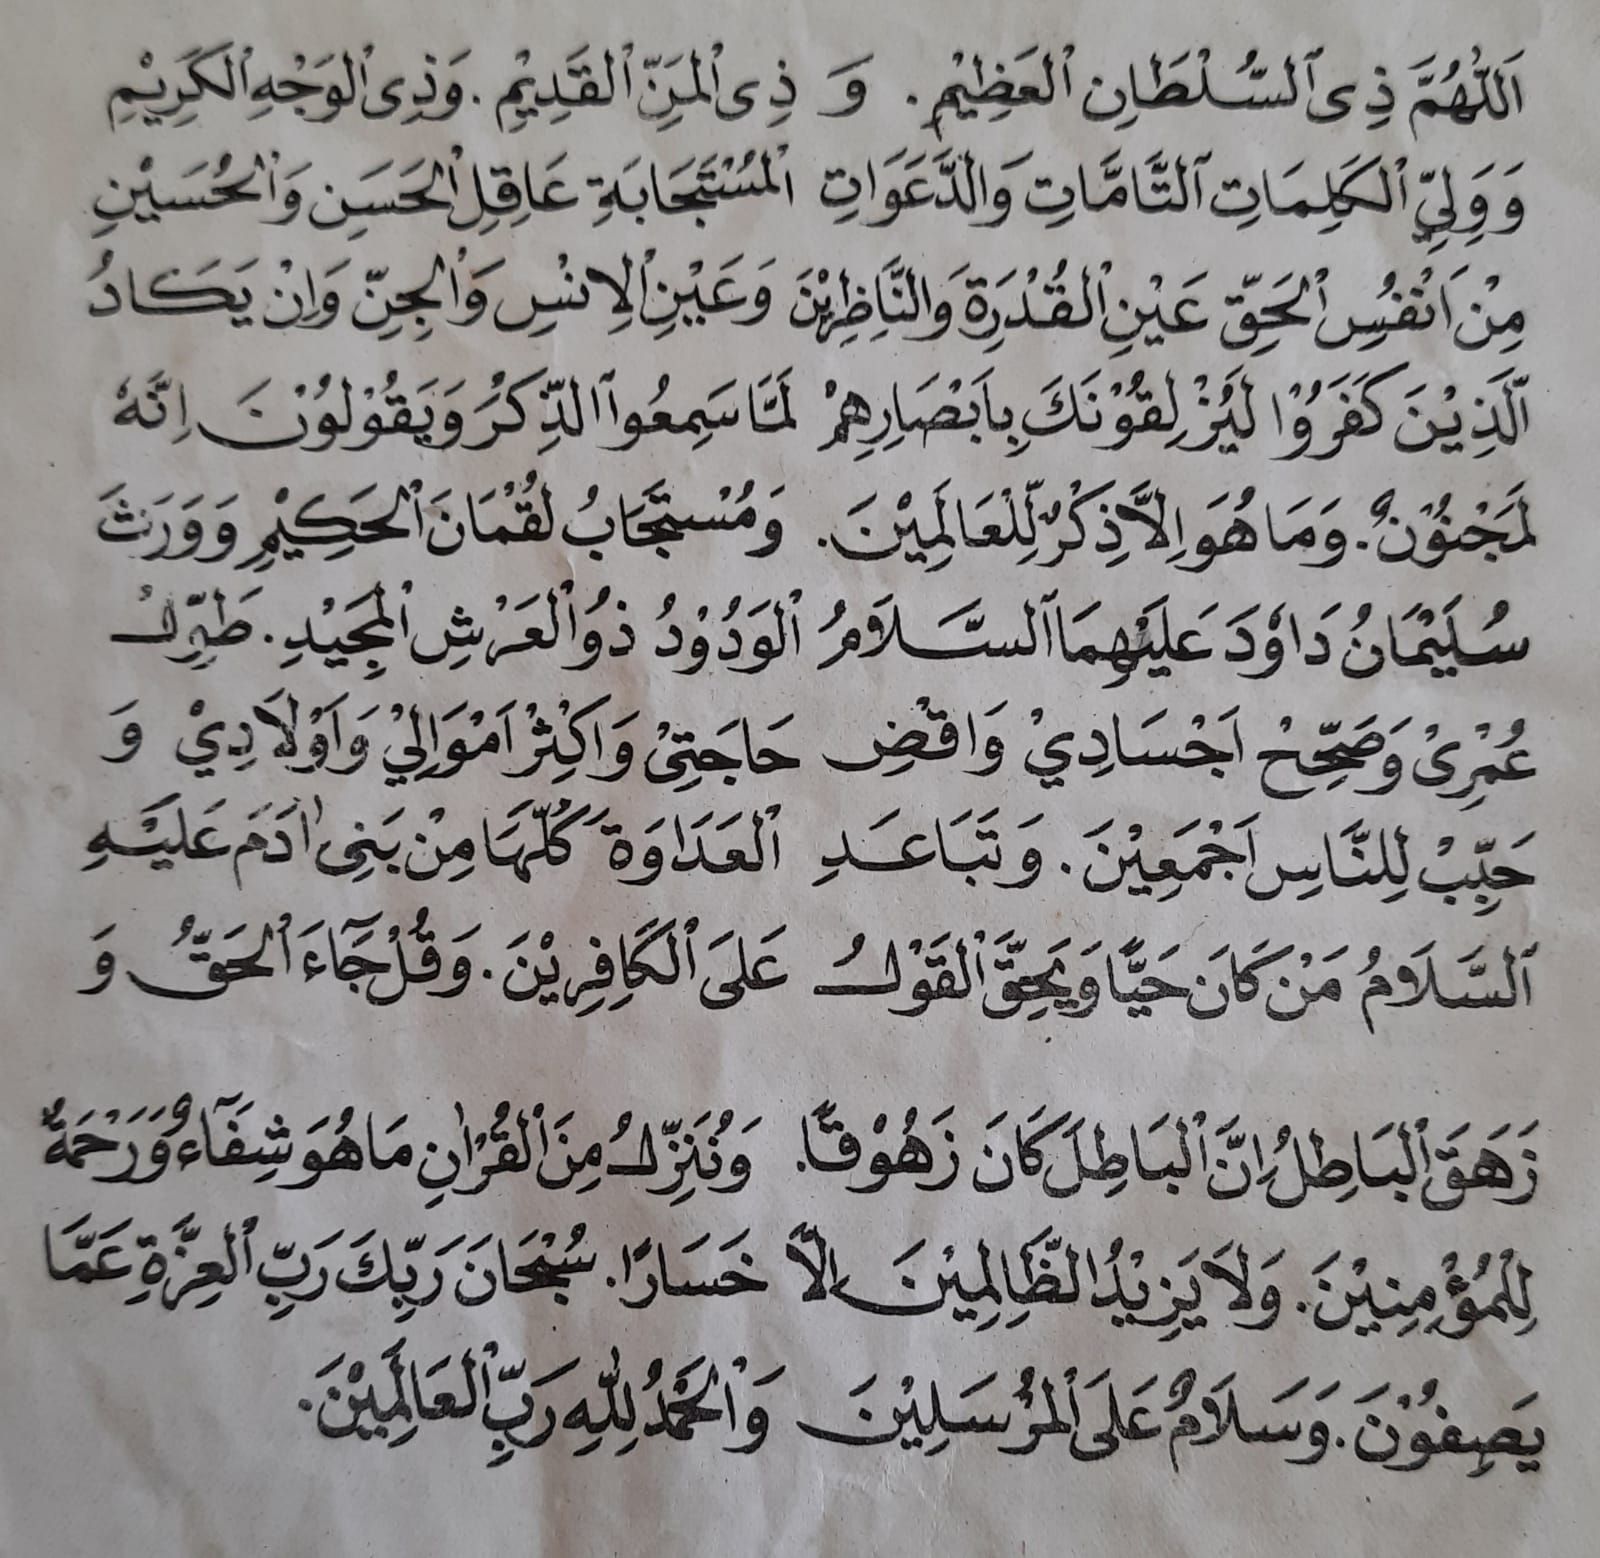 اَللّٰهُمَّ ذِى ٱلسُّلْطَانِ ٱلْعَظِيْمِ. وَ ذِى ٱلْمَنِّ ٱلْقَدِيْمِ. وَذِى ٱلْوَجْهِ ٱلْكَرِيْمِ
وَوَلِيِّ ٱلْكَلِمَاتِ ٱلتَّامَّاتِ وَالدَّعَوَاتِ الْمُسْتَجَابَةِ عَاقِلِ ٱلْحَسَنِ وَٱلْحُسَيْنِ
مِنْ اَنْفُسِ ٱلْحَقِّ عَيْنِ ٱلْقُدْرَةِ وَالنَّاظِرِيْنَ وَعَيْنِ ٱلْاِنْسِ وَٱلْجِنِّ وَاِنْ يَكَادُ
الَّذِيْنَ كَفَرُوْا لَيُزْلِقُوْنَكَ بِاَبْصَارِهِمْ لَمَّا سَمِعُوا الذِّكْرَ وَيَقُوْلُوْنَ اِنَّهُ
لَمَجْنُوْنٌ. وَمَا هُوَ اِلَّا ذِكْرٌ لِلْعَالَمِيْنَ. وَمُسْتَجَابُ لُقْمَانَ ٱلْحَكِيْمِ وَوَرَثَ
سُلَيْمَانُ دَاوٗدَ عَلَيْهِمَا ٱلسَّلَامُ ٱلْوَدُوْدُ ذُو ٱلْعَرْشِ ٱلْمَجِيْدِ. طَوِّلْ
عُمْرِىْ وَصَحِّحْ اَجْسَادِيْ وَاقْضِ حَاجَتِىْ وَاَكْثِرْ اَمْوَالِيْ وَاَوْلَادِيْ وَ
حَبِّبْ لِلنَّاسِ اَجْمَعِيْنَ. وَتَبَاعَدِ ٱلْعَدَاوَةَ كُلَّهَا مِنْ بَنِى اٰدَمَ عَلَيْهِ
ٱلسَّلَامُ مَنْ كَانَ حَيًّا وَيَحِقَّ ٱلْقَوْلُ عَلَى ٱلْكَافِرِيْنَ. وَقُلْ جَآءَ ٱلْحَقُّ وَ
زَهَقَ ٱلْبَاطِلُ اِنَّ ٱلْبَاطِلَ كَانَ زَهُوْقًا. وَنُنَزِّلُ مِنَ ٱلْقُرْاٰنِ مَا هُوَ شِفَآءٌ وَرَحْمَةٌ
لِلْمُؤْمِنِيْنَ. وَلَا يَزِيْدُ الظَّالِمِيْنَ اِلَّا خَسَارًا. سُبْحَانَ رَبِّكَ رَبِّ ٱلْعِزَّةِ عَمَّا
يَصِفُوْنَ. وَسَلَامٌ عَلَى ٱلْمُرْسَلِيْنَ وَٱلْحَمْدُ لِلّٰهِ رَبِّ ٱلْعَالَمِيْنَ.